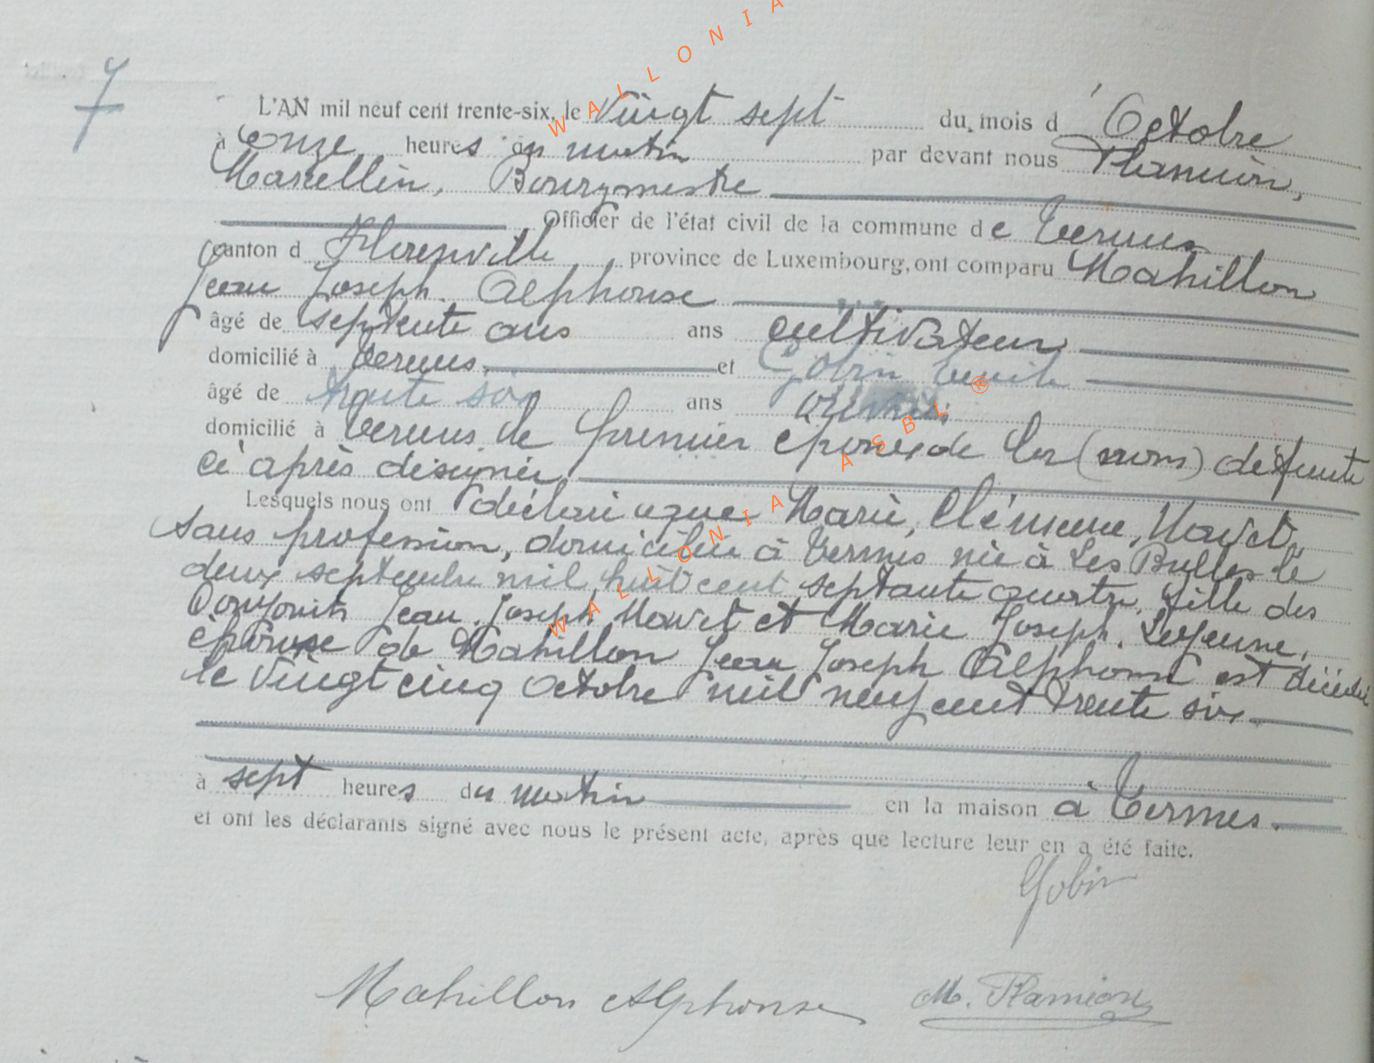 7
L'AN mil neuf cent trente-six, le Vingt sept du mois d' Octobre
à Onze heures du matin par devant nous Flamion,
Marcellin, Bourgmestre
Officier de l'état civil de la commune de Termes
canton d Florenville, province de Luxembourg, ont comparu Mahillon
Jean Joseph Alphonse
âgé de septente ans ans cultivateur
domicilié à Termes, et Gobin
âgé de trente six ans
domicilié à Termes le premier époux de la (mom) defunte
ci après désignée,
Lesquels nous ont déclaré que Marie, Clémence, Mavet,
sans profession, domiciliée à Termes née à Les Bulles le
deux septembre mil huit cent septante quatre, fille des
conjoints Jean Joseph Mavet et Marie Joseph Lejeune,
épouse de Mahillon Jean Joseph Alphonse est décédée
le vingt cinq Octobre mil neuf cent trente six
à sept heures du matin en la maison à Termes.
et ont les déclarants signé avec nous le présent acte, après que lecture leur en a été faite.
Gobin
Mahillon Alphonse M. Flamion
WALLONIA ASBL ®
WALLONIA